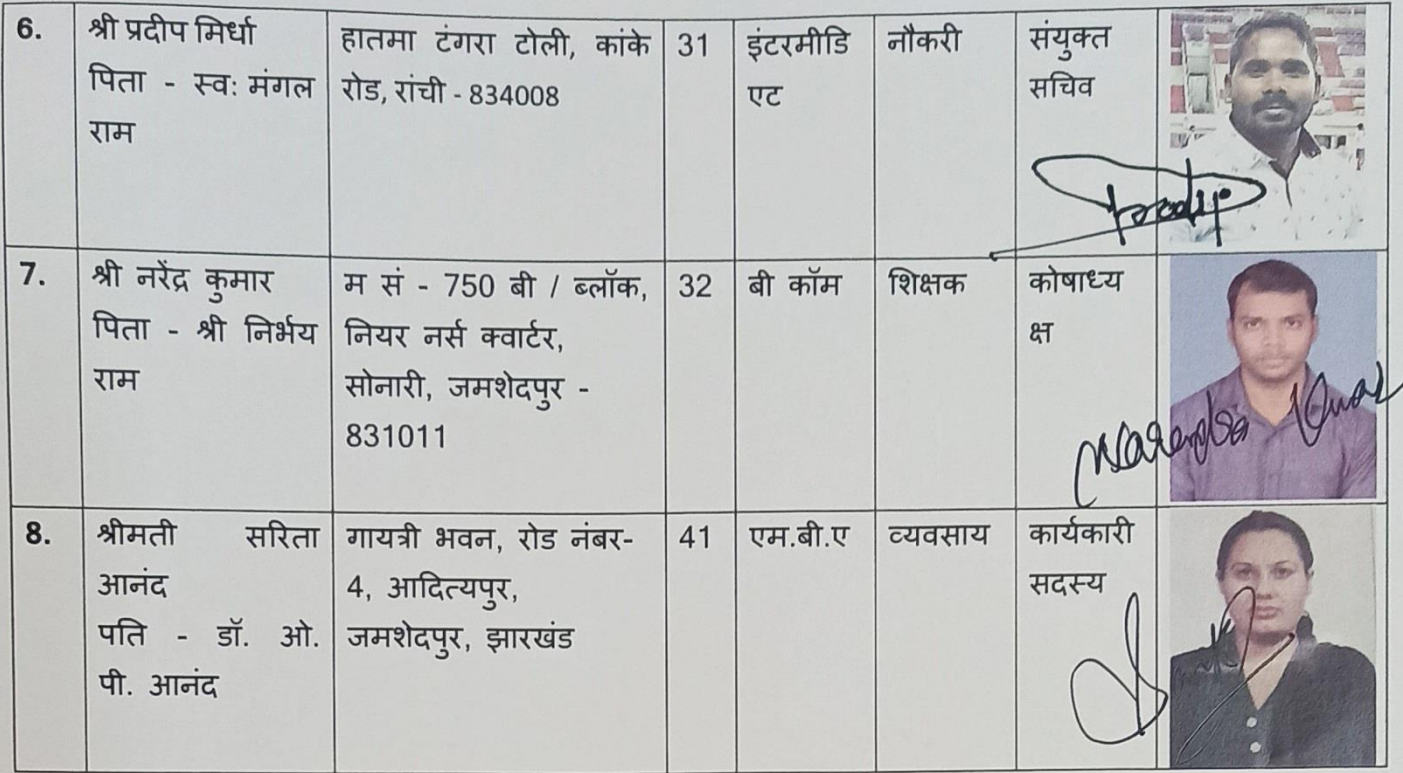 6.
श्री प्रदीप मिर्धा
पिता - स्व: मंगल
राम
हातमा टंगरा टोली, कांके
रोड, रांची - 834008
31
इंटरमीडि
एट
नौकरी
संयुक्त
सचिव
Pradip
7.
श्री नरेंद्र कुमार
पिता - श्री निर्भय
राम
म सं - 750 बी / ब्लॉक,
नियर नर्स क्वार्टर,
सोनारी, जमशेदपुर -
831011
32
बी कॉम
शिक्षक
कोषाध्य
क्ष
Narendra Kumar
8.
श्रीमती सरिता
आनंद
पति - डॉ. ओ.
पी. आनंद
गायत्री भवन, रोड नंबर-
4, आदित्यपुर,
जमशेदपुर, झारखंड
41
एम.बी.ए
व्यवसाय
कार्यकारी
सदस्य